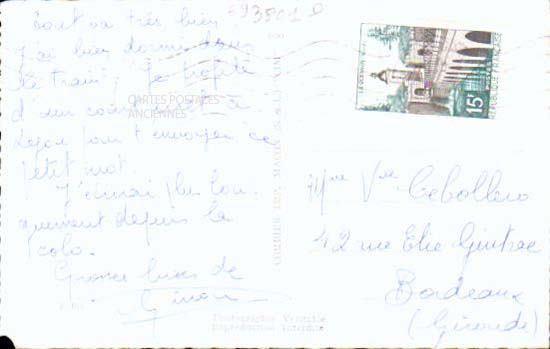 Tout va très bien
J'ai bien dormi dans
le train. Je profite
d'un
pour t'envoyer ce
petit mot.
J'écrirai plus lon-
guement depuis la
colo.
Grosses bises de
CARTES POSTALES
ANCIENNES
Photographie Véritable
Reproduction Interdite
15F
Mme Vve Cebollero
42 rue Elie Gintrac
Bordeaux
(Gironde)